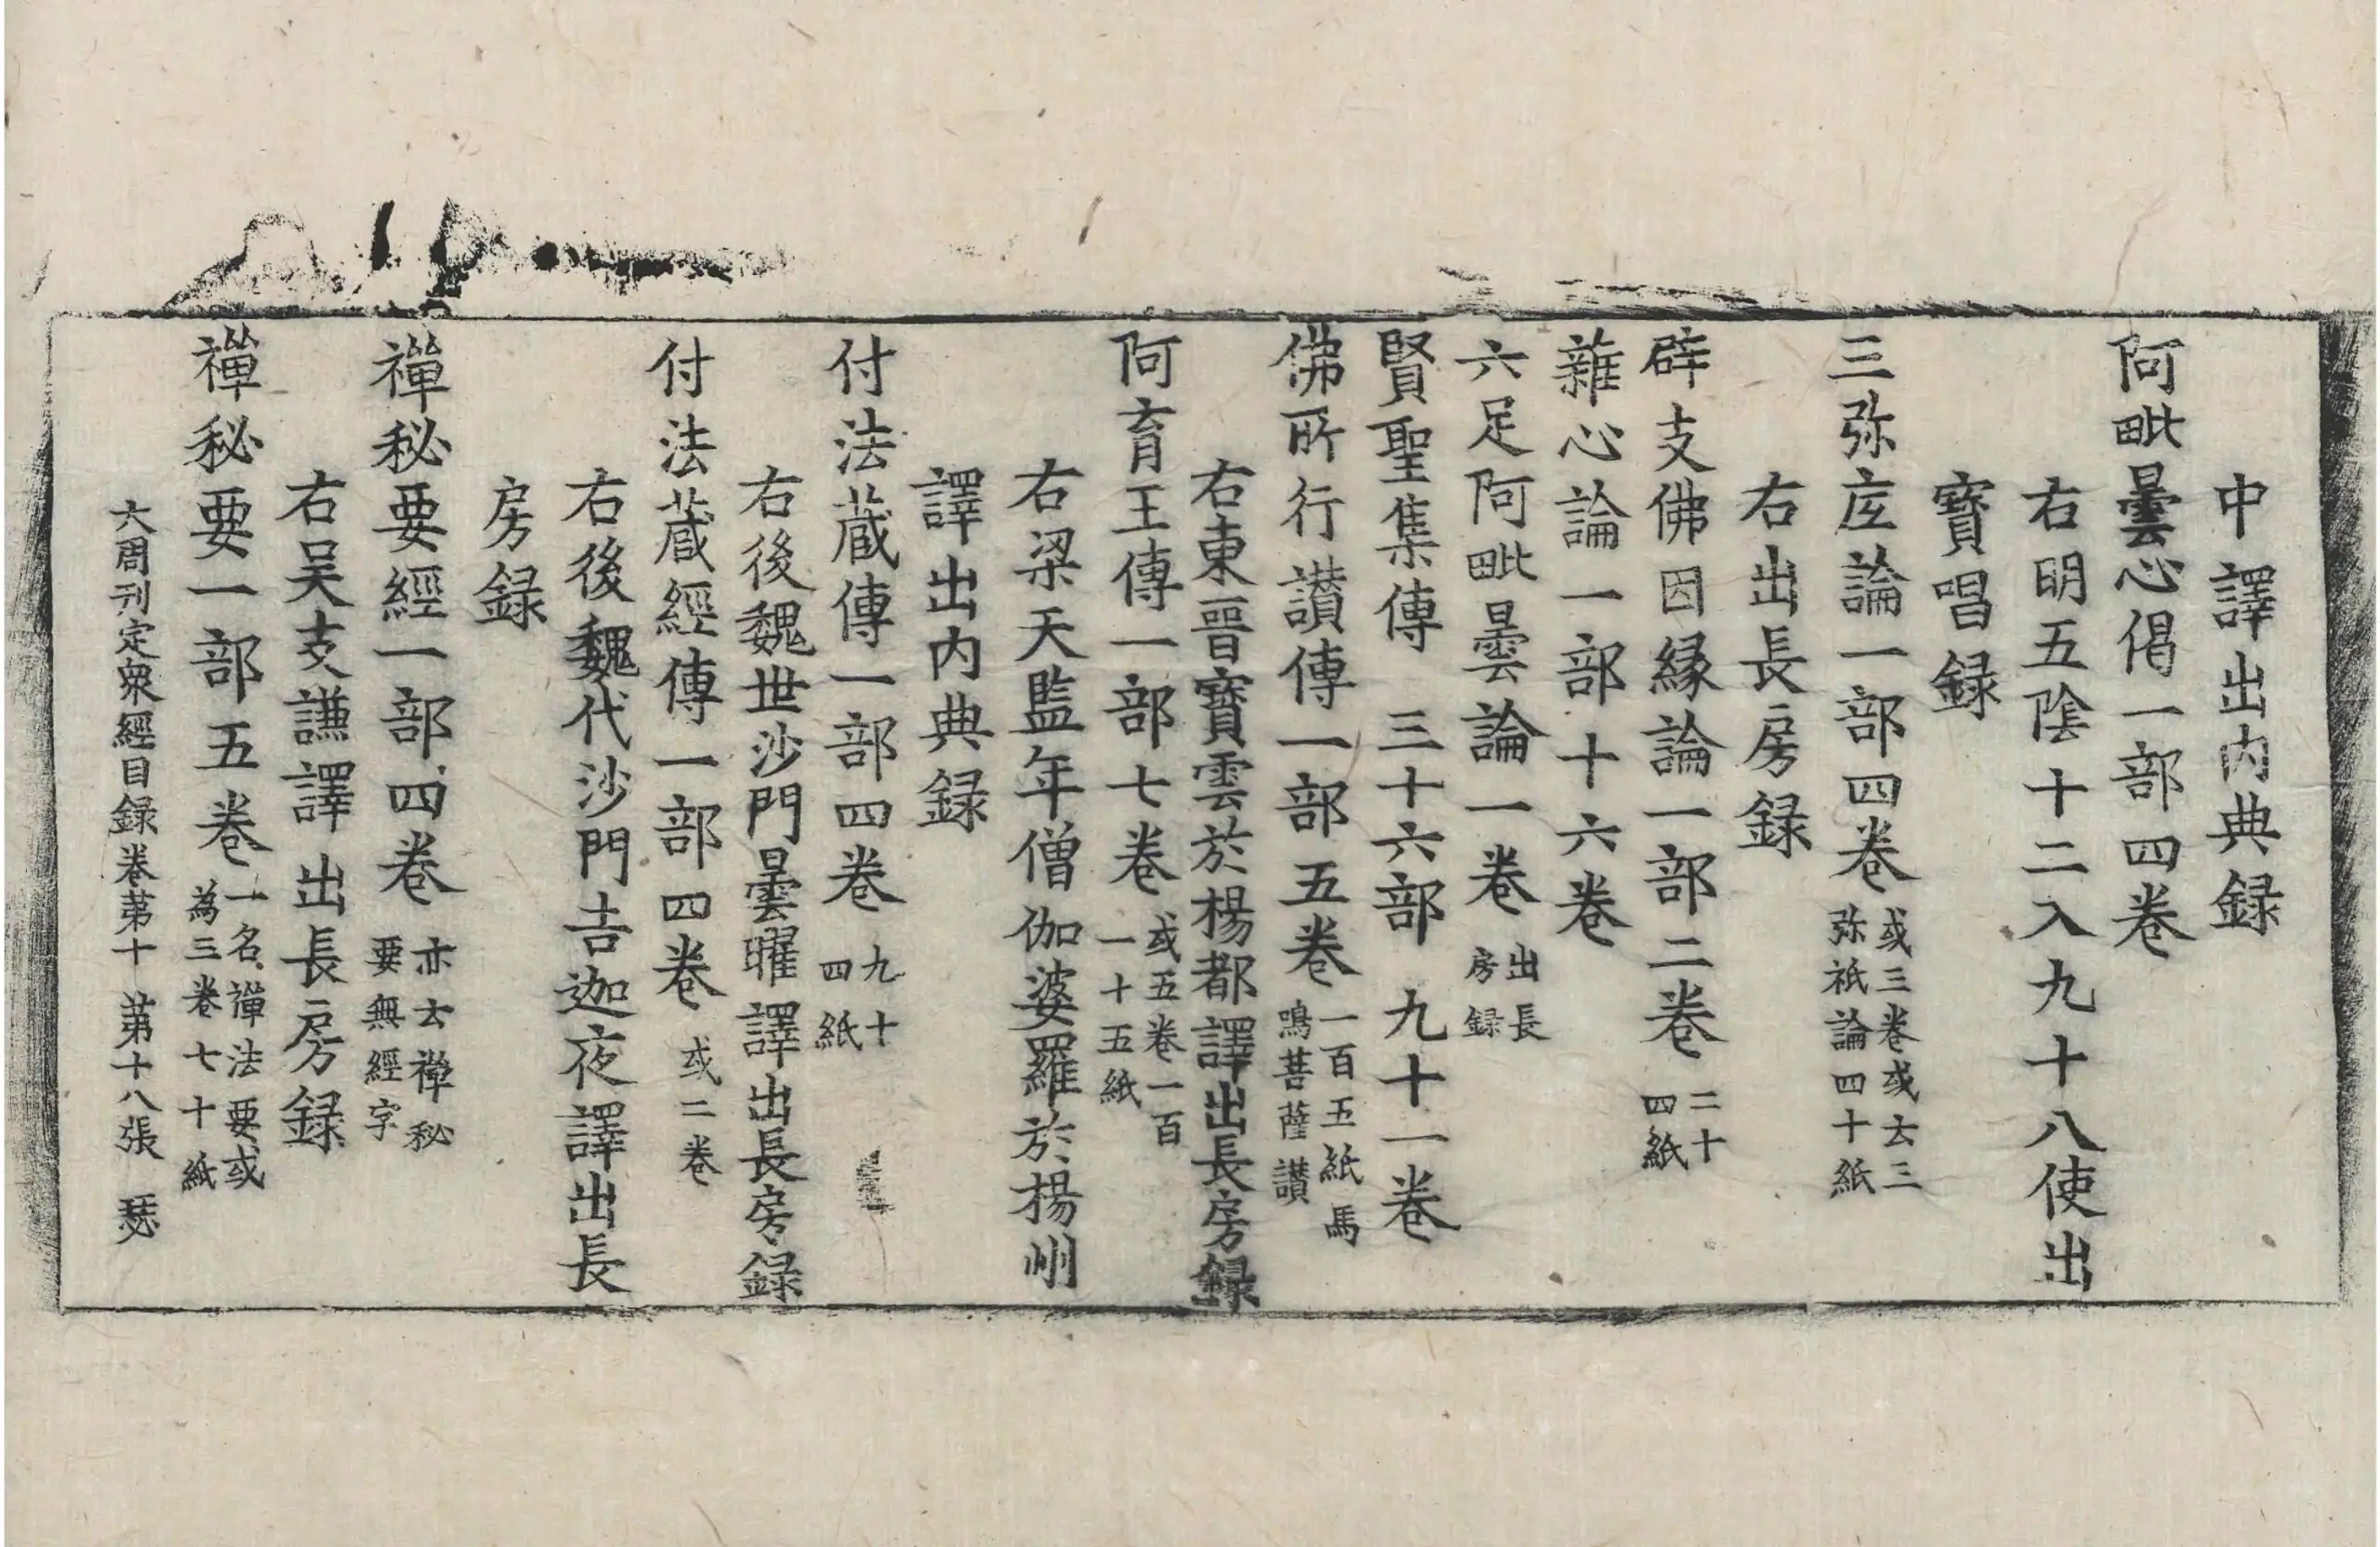 中譯出內典録
阿毗曇心偈一部四卷
右明五陰十二入九十八使出
寳唱録
三弥底論一部四卷 或三卷或云三
弥祇論四十紙
右出長房録
辟支佛因縁論一部二卷 二十
四紙
雜心論一部十六卷
六足阿毗曇論一卷 出長
房録
賢聖集傳 三十六部 九十一卷
佛所行讃傳一部五卷 一百五紙馬
鳴菩薩讃
右東晉寳雲於楊都譯出長房録
阿育王傳一部七卷 或五卷一百
一十五紙
右梁天監年僧伽婆羅於楊州
譯出内典録
付法藏傳一部四卷 九十
四紙
右後魏世沙門曇曜譯出長房録
付法藏經傳一部四卷 或二卷
右後魏代沙門吉迦夜譯出長
房録
禪秘要經一部四卷 亦云禪秘
要無經字
右吴支謙譯出長房録
禪秘要一部五卷 一名禪法要或
為三卷七十紙
大周刊定衆經目録卷苐十 苐十八張 瑟